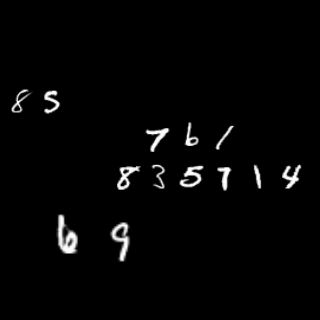 85
761
835714
69